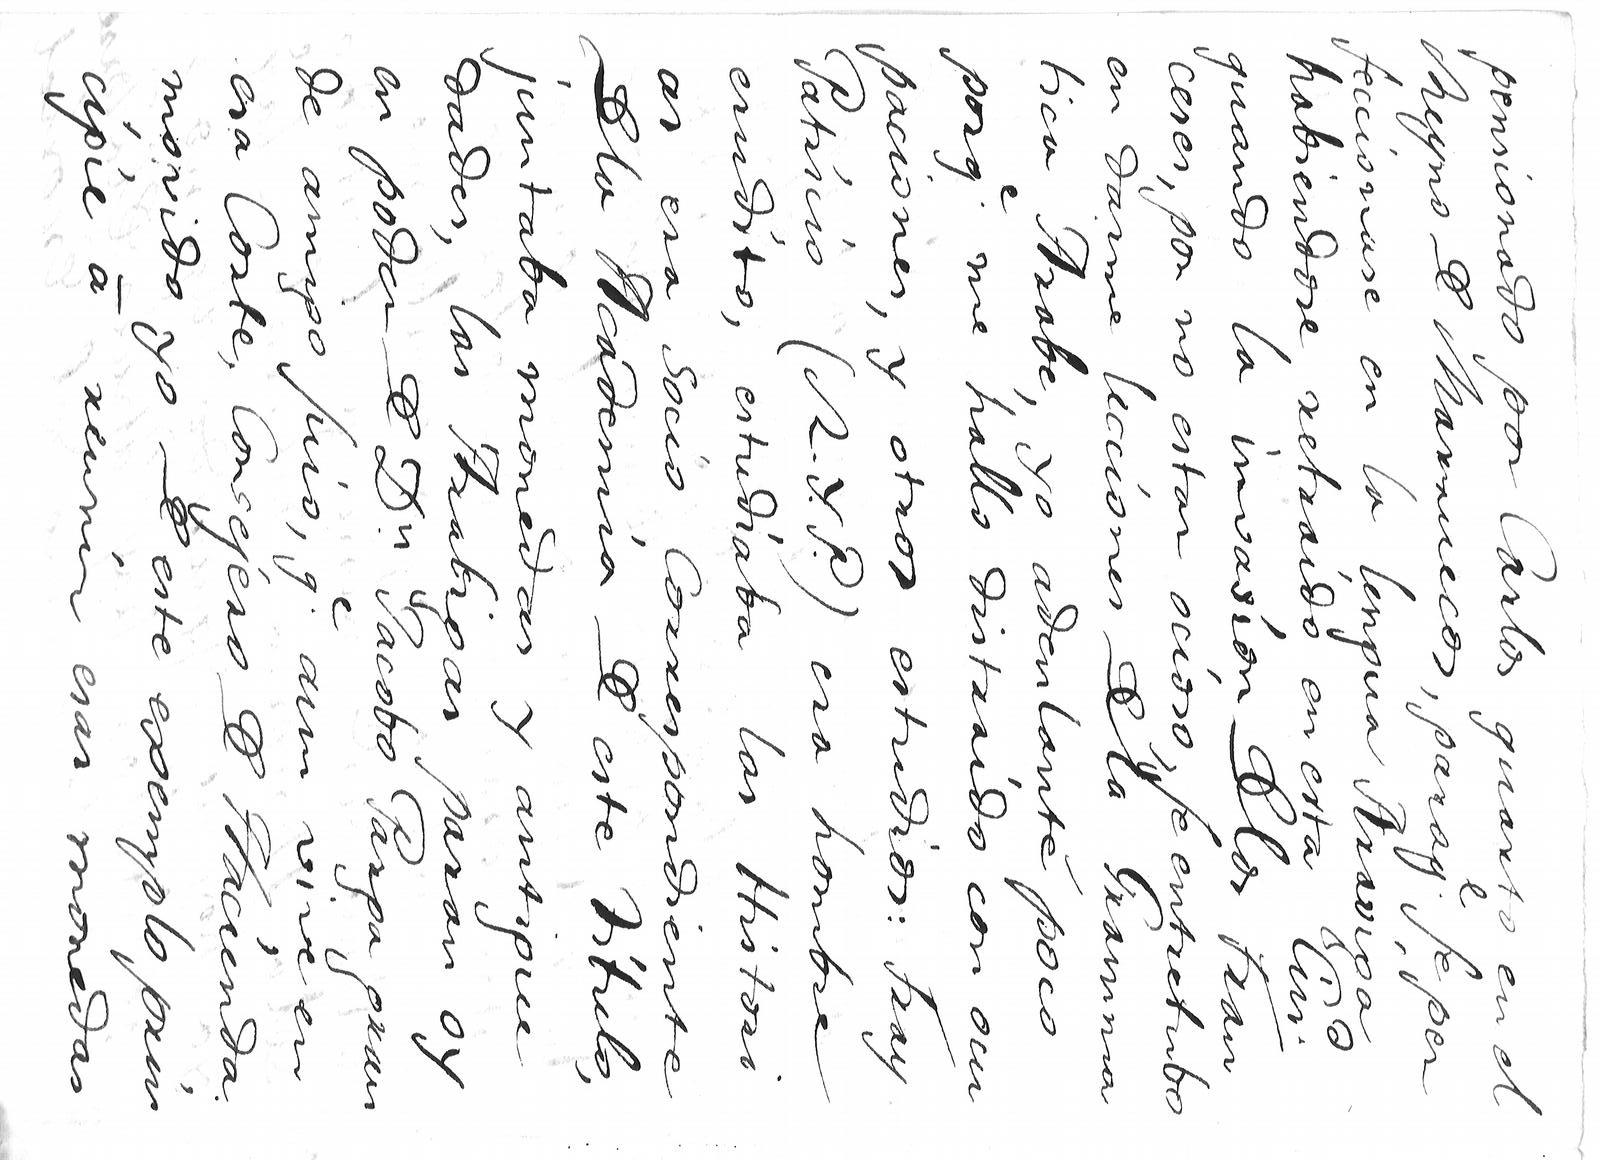 pensionado por Carlos quarto en el
Reyno de Marruecos, para q.e se per
feccionase en la lengua Araviga
habiendose retraido en esta Ciu.d
quando la invasión de los Fran
ceses, por no estar ocioso, se entretubo
en darme lecciones de la Gramma
tica Arabe, yo adentanté poco
porq.e me hallo distraido con ocu
paciones, y otros estudios: Fray
Patricio (R.Y.P.) era hombre
erudito, estudiaba las Histori
as era Socio Correspondiente
de la Academia de este titulo,
juntaba monedas y antigue
dades, las Arabigas paran oy
en poder de D.n Jacobo Parga gran
de amigo suio, q.e aun vive en
esa Corte, Consejero de Hacienda.
movido yo de este exemplo prin
cipié à reunir esas monedas